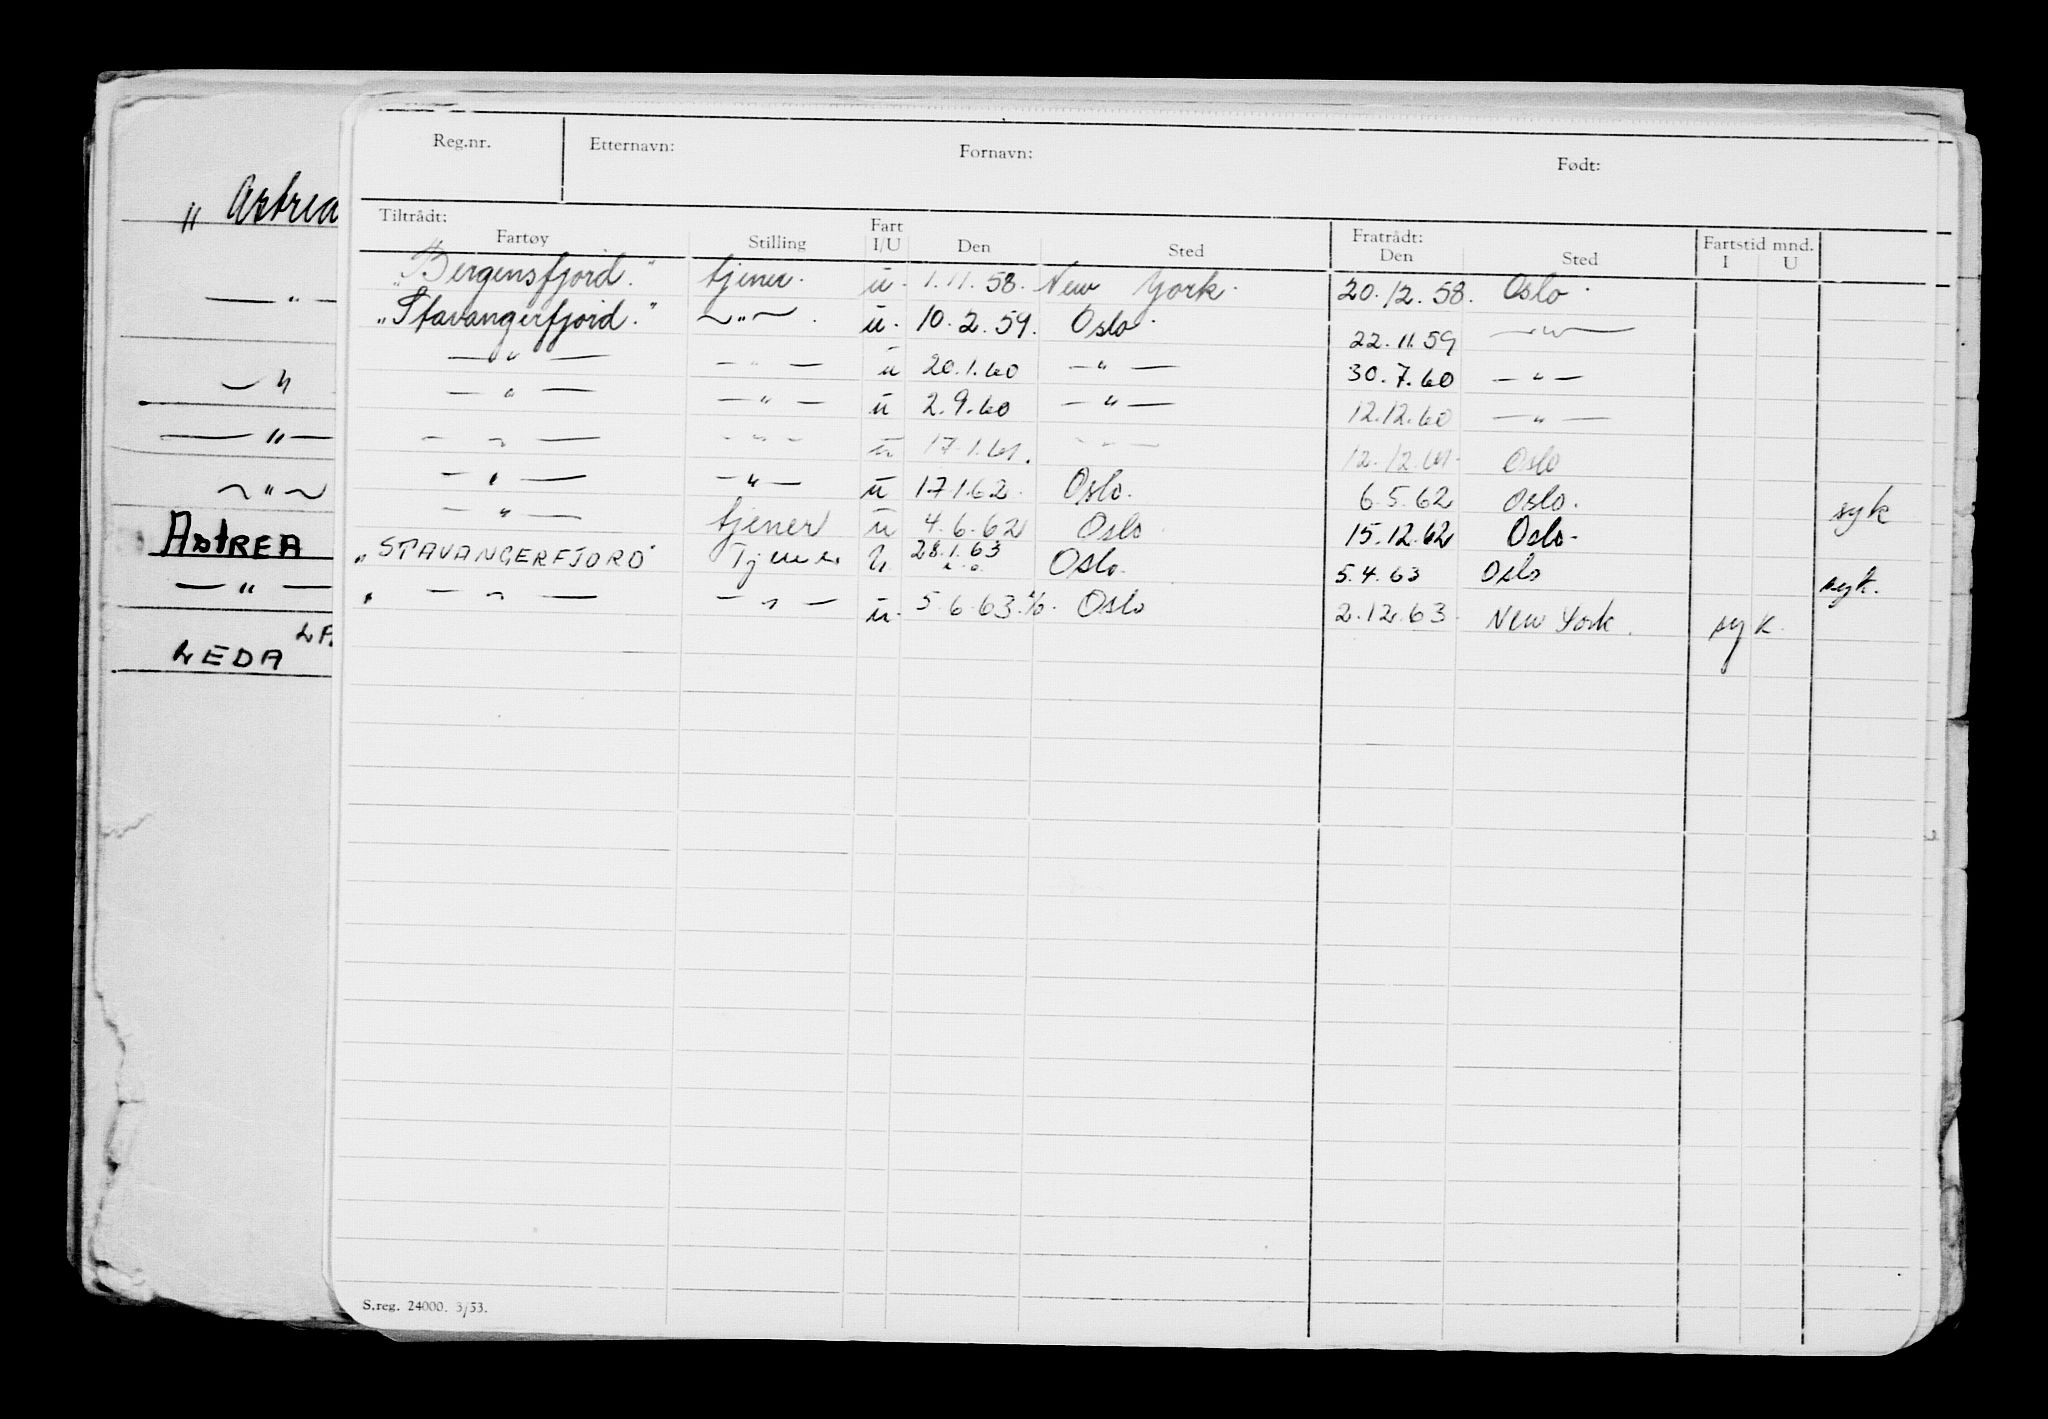 „ Astrea
— " —
— " —
— " —
~ " ~
ASTREA
— " —
LEDA
Reg.nr. Etternavn: Fornavn: Født:
Tiltrådt: Fratrådt:
Fartøy Stilling Fart I/U Den Sted Den Sted Fartstid mnd. I U
„Bergensfjord." tjener. u. 1.11.58. New York. 20.12.58. Oslo.
„Stavangerfjord." ~ " ~ . u. 10.2.59. Oslo. 22.11.59 — " —
— " — — " — u 20.1.60 — " — 30.7.60 — " —
— " — — " — u 2.9.60 — " — 12.12.60 — " —
— " — — " — u 17.1.61. — " — 12.12.61. Oslo
— " — — " — u 17.1.62. Oslo. 6.5.62 Oslo. syk
— " — tjener u 4.6.62 Oslo. 15.12.62 Oslo-
„STAVANGERFJORD" Tjener U 28.1.63 Oslo. 5.4.63 Oslo syk.
" — " — — " — u. 5.6.63. Oslo 2.12.63. New York. syk.
S.reg. 24000. 3/53.